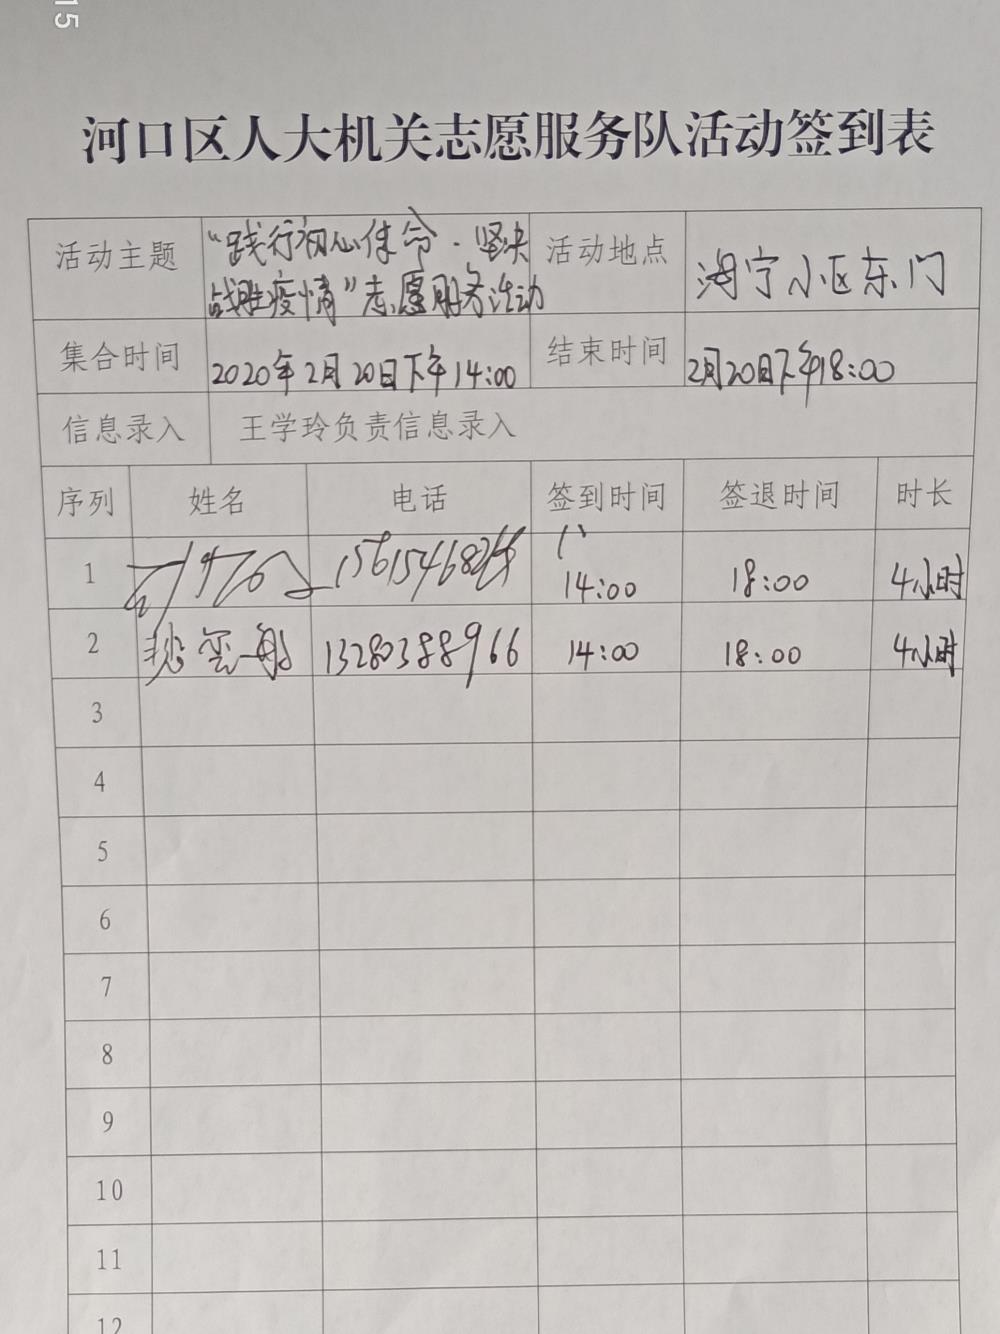 15
河口区人大机关志愿服务队活动签到表
活动主题 "践行初心使命·坚决 活动地点 海宁小区东门
战胜疫情"志愿服务活动
集合时间 2020年2月20日下午14:00 结束时间 2月20日下午18:00
信息录入 王学玲负责信息录入
序列 姓名 电话 签到时间 签退时间 时长
1 14:00 18:00 4小时
2 13280388966 14:00 18:00 4小时
3
4
5
6
7
8
9
10
11
12